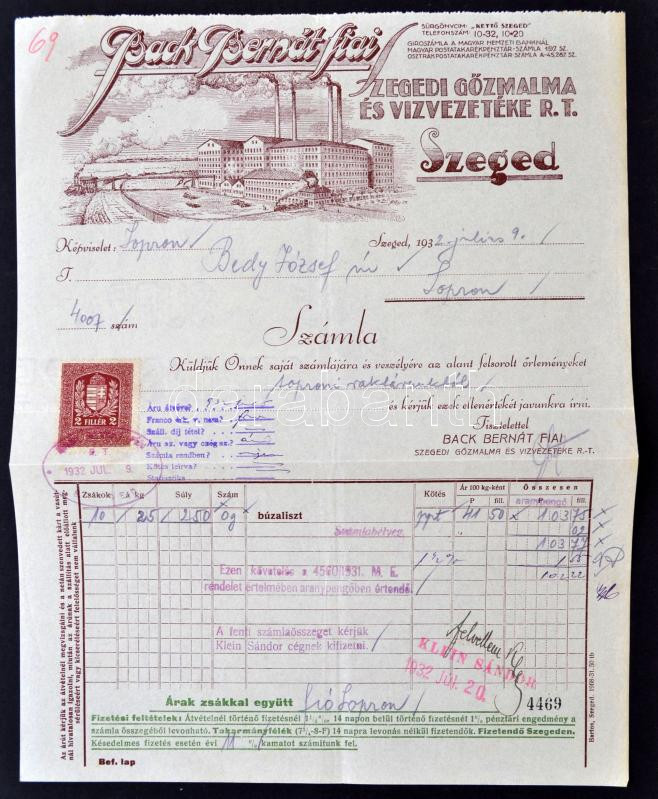 69
Back Bernát fiai
SÜRGÖNYCIM: "KETTŐ SZEGED"
TELEFONSZÁM: 10-32, 10-20
GIROSZÁMLA A MAGYAR NEMZETI BANKNÁL
MAGYAR POSTATAKARÉKPÉNZTÁR-SZÁMLA 192 SZ.
OSZTRÁK POSTATAKARÉKPÉNZTÁR-SZÁMLA A-45.287 SZ.
SZEGEDI GŐZMALMA
ÉS VIZVEZETÉKE R.T.
Szeged
Képviselet: Sopron
Szeged, 1932 július 9.
T. Bedy József úr
Sopron
4007 szám
Számla
Küldjük Önnek saját számlájára és veszélyére az alant felsorolt őrleményeket
soproni raktárunkból
és kérjük ezek ellenértékét javunkra írni.
Tisztelettel
BACK BERNÁT FIAI
SZEGEDI GŐZMALMA ÉS VIZVEZETÉKE R.-T.
2 2
FILLÉR
Áru átvéve?
Franco érk. v. nem?
Száll. dij tétel?
Áru sz. vagy cég sz.?
Számla rendben?
Kötés leirva?
Statisztika
R. T.
1932 JUL. 9.
Zsákok EÁ kg Súly Szám Kötés Ár 100 kg-ként P fill. Összesen aranypengő fill.
10 / 25 / 250 0g búzaliszt 41 50 103 75
Számlabélyeg 02
103 77
1 55
102 22
Ezen követelés a 4560/1931. M. E.
rendelet értelmében aranypengőben értendő.
A fenti számlaösszeget kérjük
Klein Sándor cégnek kifizetni.
felvettem
KLEIN SÁNDOR
1932 JUL. 20.
Árak zsákkal együtt fió Sopron
4469
Fizetési feltételek: Átvételnél történő fizetésnél 1½%, 14 napon belül történő fizetésnél 1%, pénztári engedmény a
számla összegéből levonható. Takarmányfélék (7¼-8-F) 14 napra levonás nélkül fizetendők. Fizetendő Szegeden.
Késedelmes fizetés esetén évi 11 % kamatot számítunk fel.
Bef. lap
Az árút kérjük az átvételnél megvizsgálni és a netán szenvedett kárt a vasút-
nál hivatalosan igazolni, miután az árúnak a szállítás alatt előállott meg-
sérüléseért vagy kicseréléseért felelősséget nem vállalunk
Bartos, Szeged. 1908-31. 50 tb
darabanth